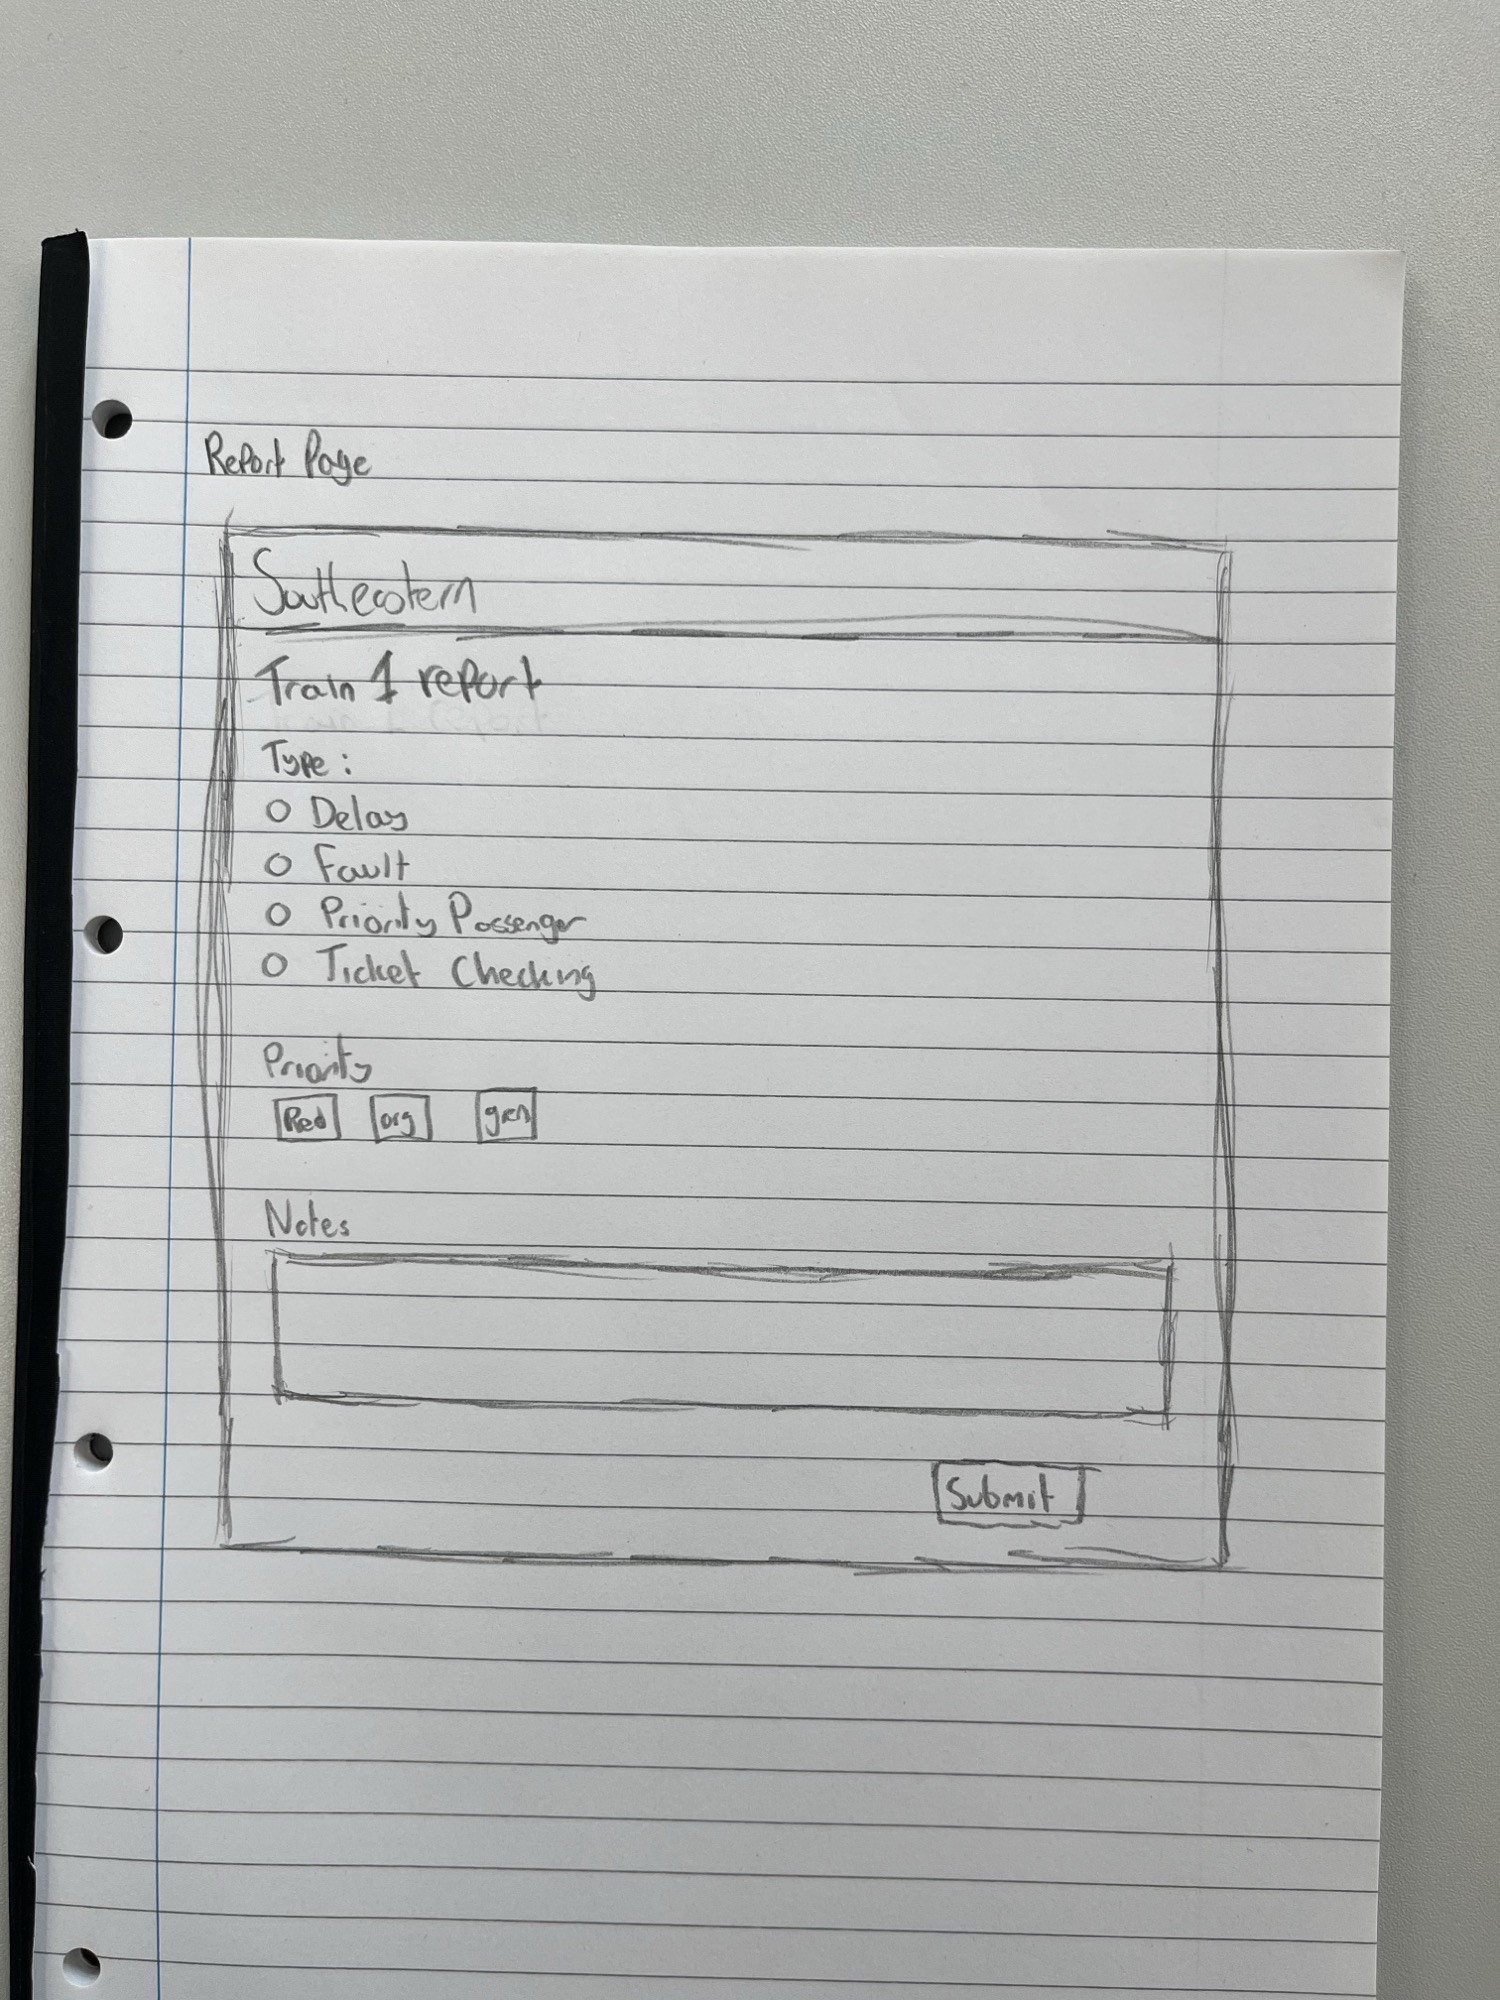 Report Page
Southeastern
Train 1 report
Type :
Delay
Fault
Priority Passenger
Ticket Checking
Priority
Red org grn
Notes
Submit